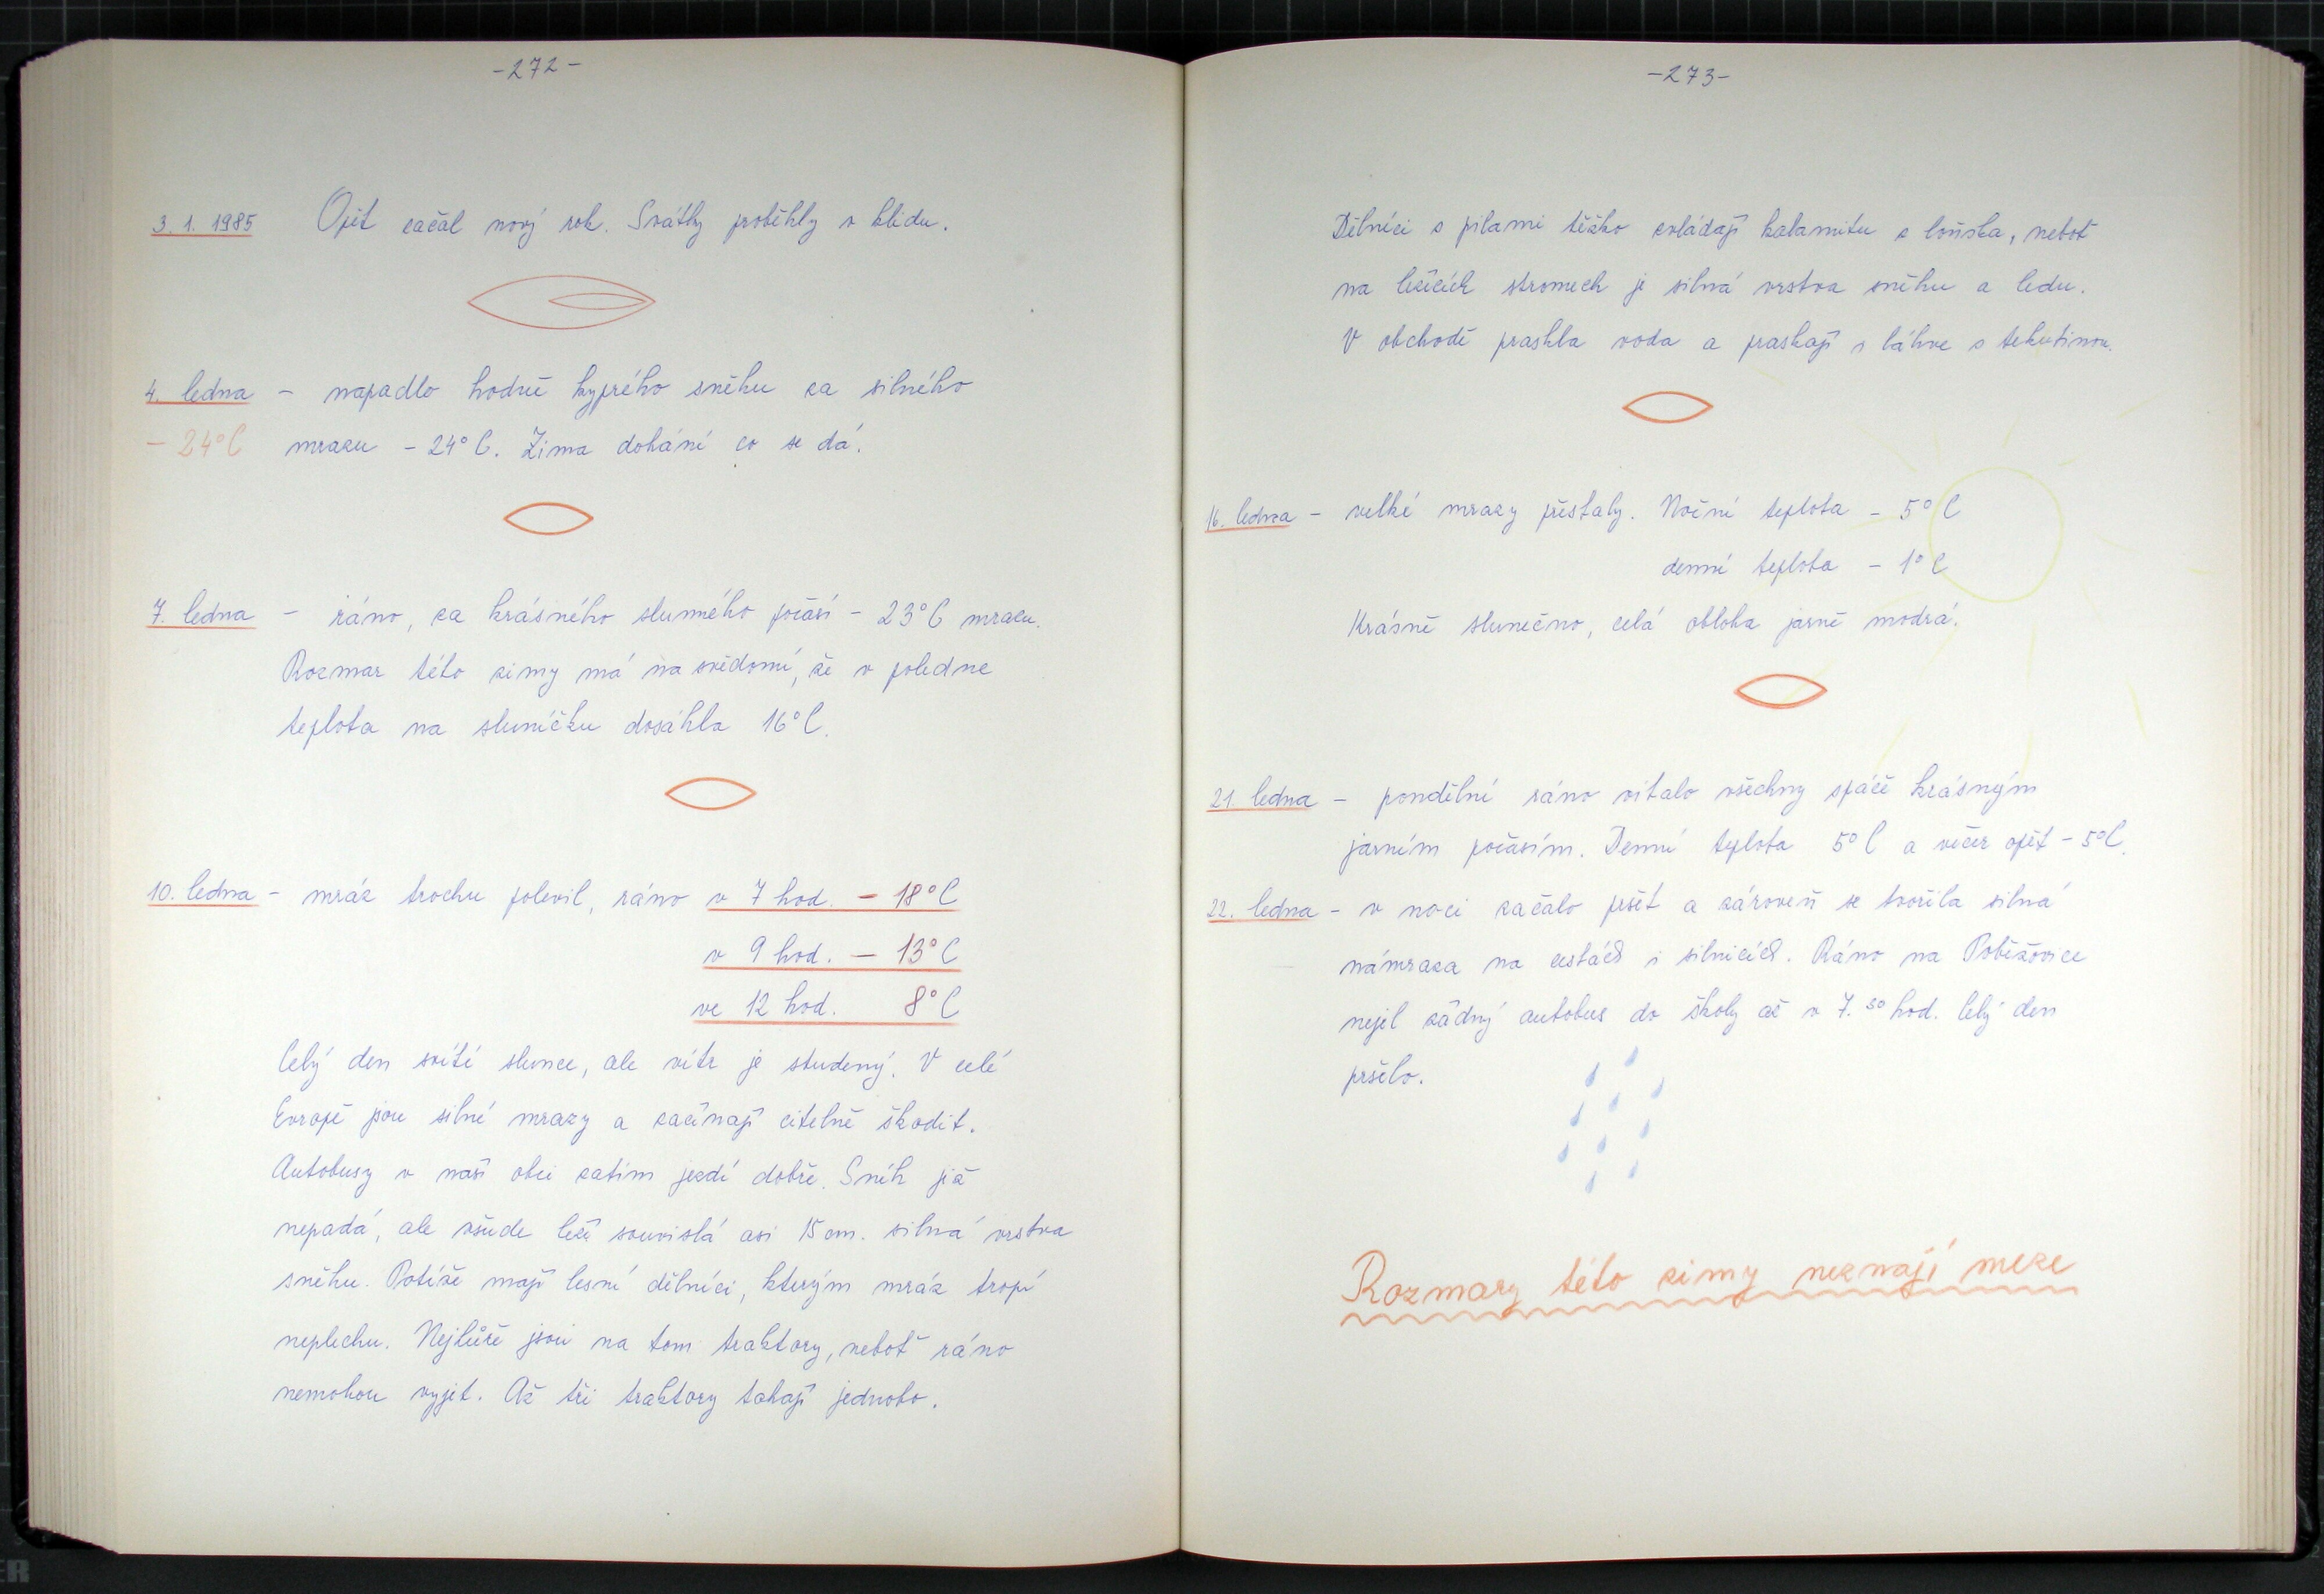 -272-
3. 1. 1985 Opět začal nový rok. Svátky proběhly v klidu.
4. ledna - napadlo hodně kyprého sněhu za silného
- 24°C mrazu - 24°C. Zima dohání co se dá.
7. ledna - ráno, za krásného slunného počasí - 23°C mrazu.
Rozmar této zimy má na svědomí, že v poledne
teplota na sluníčku dosáhla 16°C.
10. ledna - mráz trochu polevil, ráno v 7 hod. - 18°C
v 9 hod. - 13°C
ve 12 hod. 8°C
Celý den svítí slunce, ale vítr je studený. V celé
Evropě jsou silné mrazy a začínají citelně škodit.
Autobusy v naší obci zatím jezdí dobře. Sníh již
nepadá, ale všude leží souvislá asi 15 cm. silná vrstva
sněhu. Potíže mají lesní dělníci, kterým mráz tropí
neplechu. Nejhůře jsou na tom traktory, neboť ráno
nemohou vyjet. Až tři traktory tahají jednoho.
-273-
Dělníci s pilami těžko zvládají kalamitu z loňska, neboť
na ležících stromech je silná vrstva sněhu a ledu.
V obchodě praskla voda a praskají i láhve s tekutinou.
16. ledna - velké mrazy přestaly. Noční teplota - 5°C
denní teplota - 1°C
Krásně slunečno, celá obloha jarně modrá.
21. ledna - pondělní ráno vítalo všechny spáče krásným
jarním počasím. Denní teplota 5°C a večer opět - 5°C.
22. ledna - v noci začalo pršet a zároveň se tvořila silná
námraza na cestách i silnicích. Ráno na Poběžovice
nejel žádný autobus do školy až v 7.30 hod. Celý den
pršelo.
Rozmary této zimy neznají meze